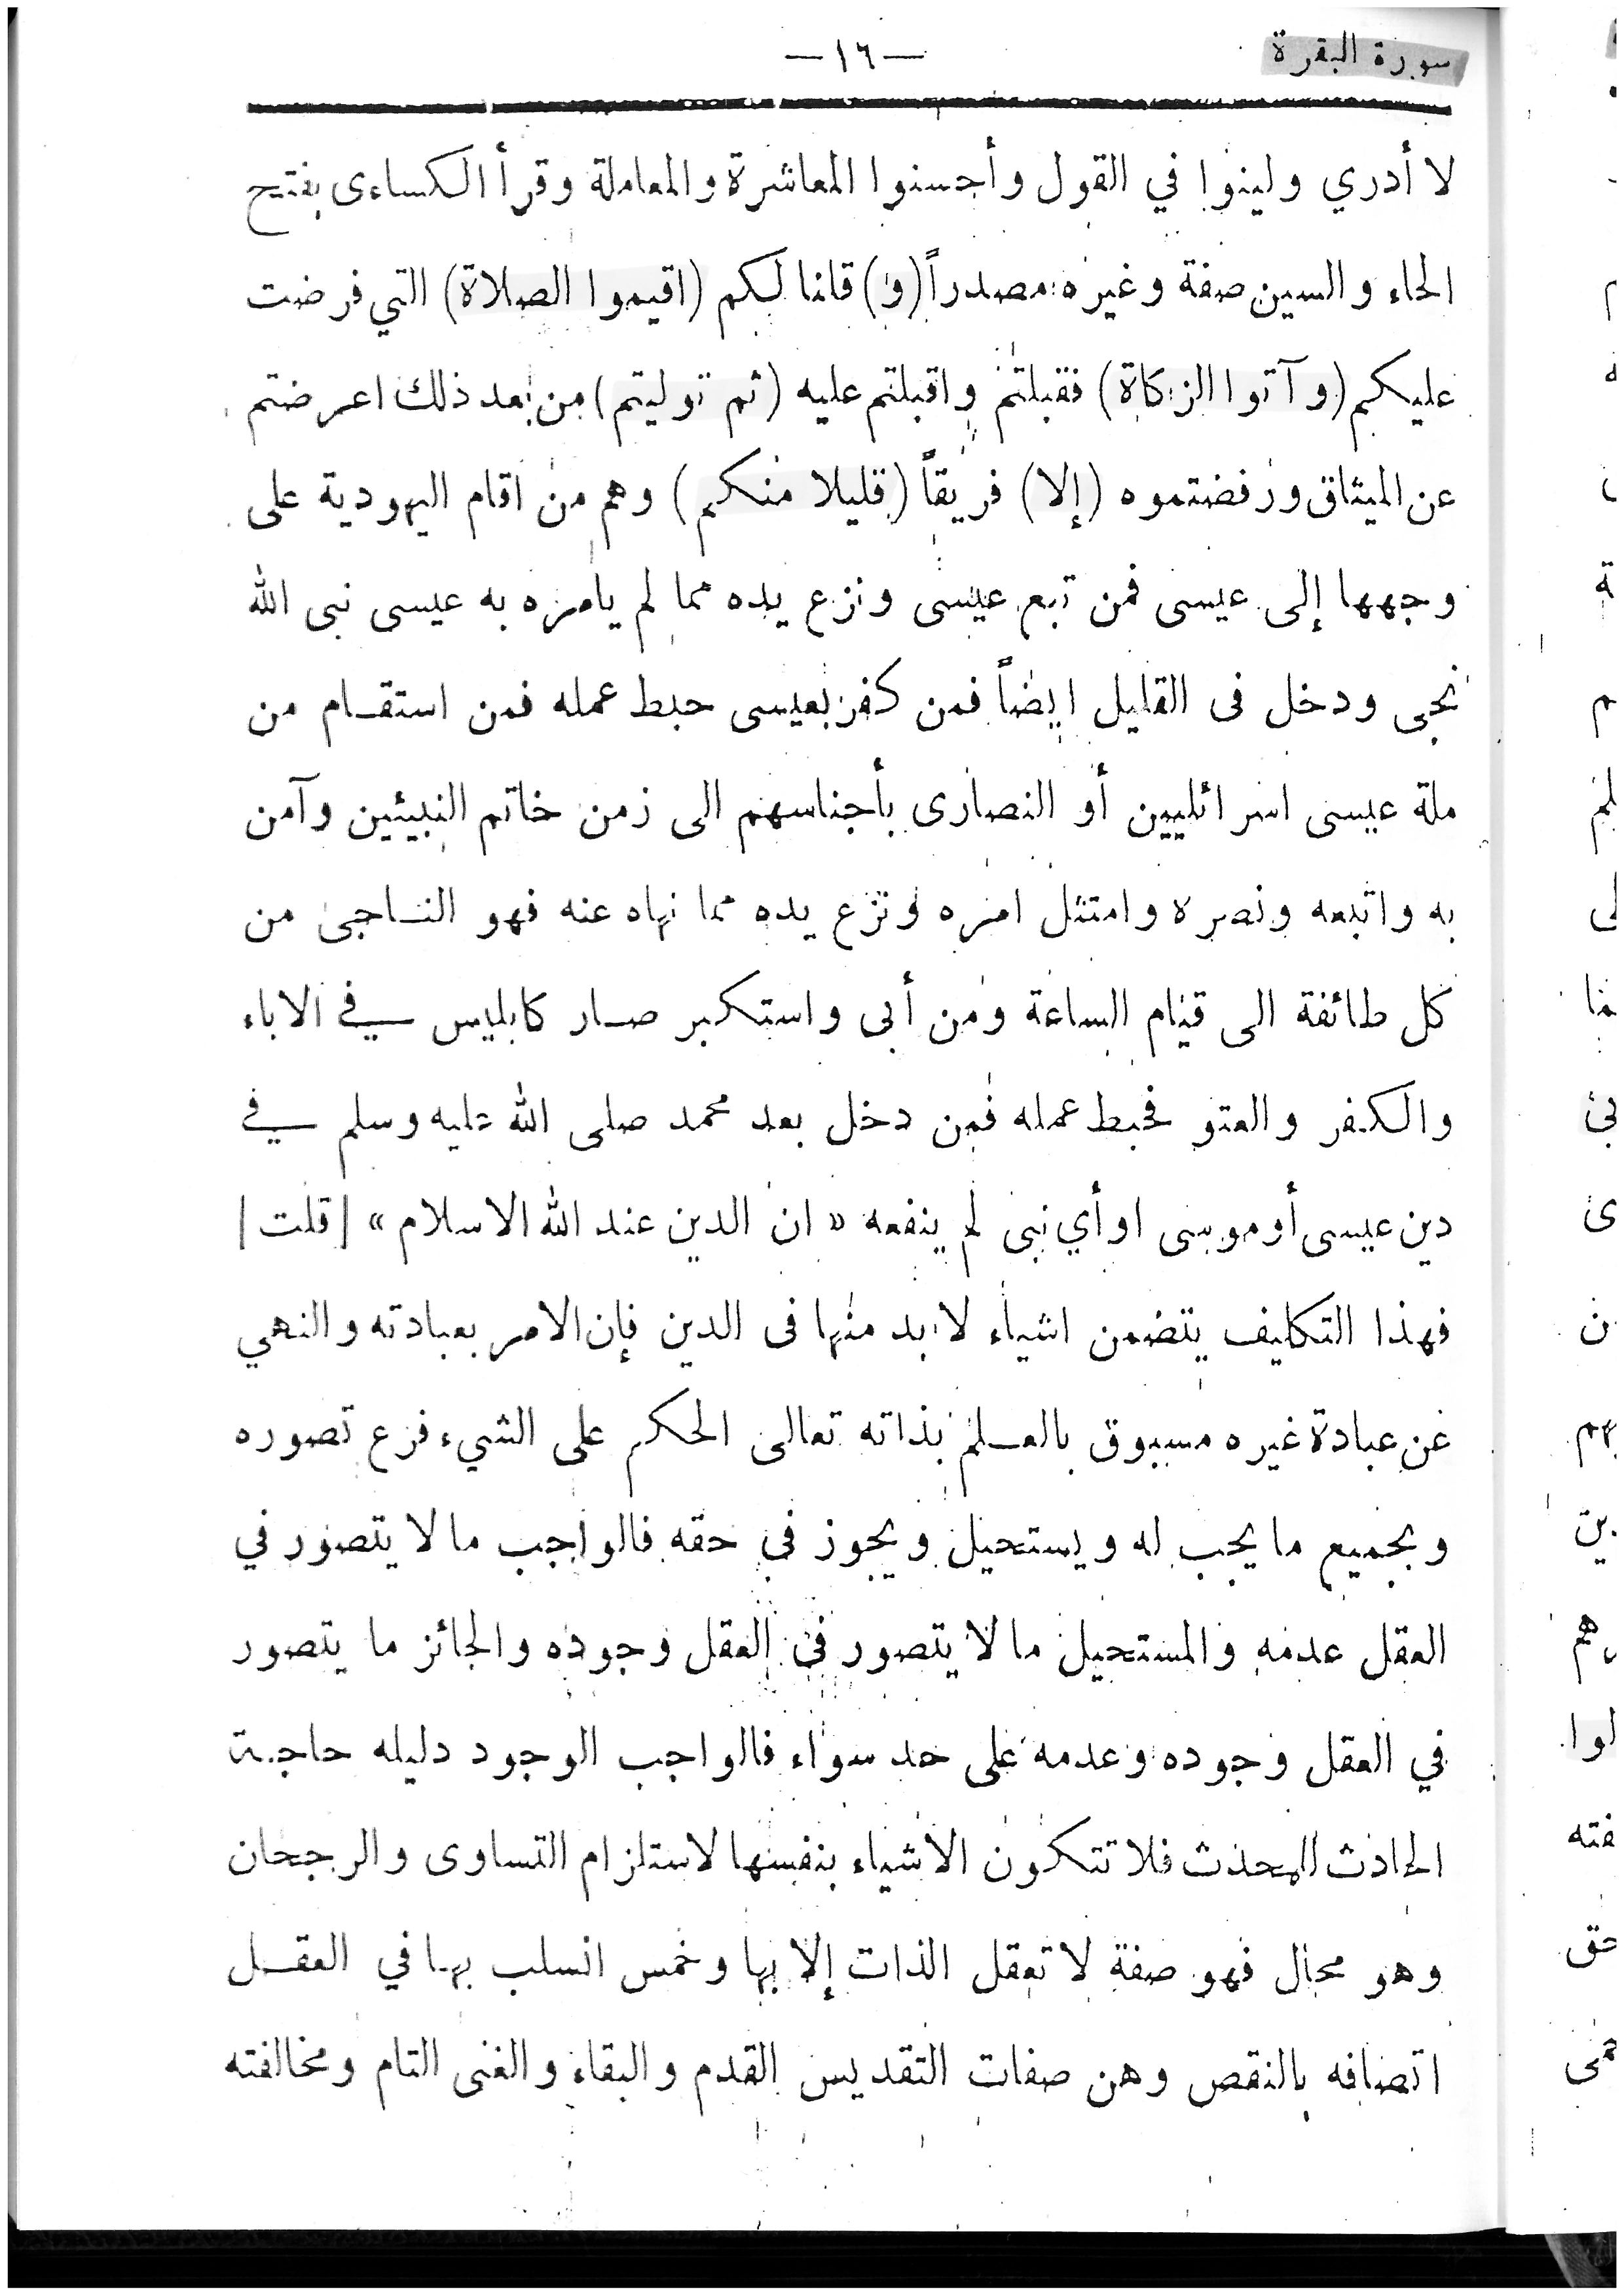 سورة البقرة
—١٦—
لا أدري ولينوا في القول وأحسنوا المعاشرة والمعاملة وقرأ الكساءى بفتح
الحاء والسين صفة وغيره مصدراً (و) قلنا لكم (اقيموا الصلاة) التي فرضت
عليكم (وآتوا الزكاة) فقبلتم واقبلتم عليه (ثم توليتم) من بعد ذلك اعرضتم
عن الميثاق ورفضتموه (إلا) فريقاً (قليلا منكم) وهم من اقام اليهودية على
وجهها إلى عيسى فمن تبع عيسى ونزع يده مما لم يامره به عيسى نبى الله
نجى ودخل فى القليل ايضاً فمن كفر بعيسى حبط عمله فمن استقام من
ملة عيسى اسرائليين أو النصارى بأجناسهم الى زمن خاتم النبيئين وآمن
به واتبعه ونصره وامتثل امره ونزع يده مما نهاه عنه فهو الناجى من
كل طائفة الى قيام الساعة ومن أبى واستكبر صار كابليس في الاباء
والكفر والعتو فحبط عمله فمن دخل بعد محمد صلى الله عليه وسلم في
دين عيسى أو موسى او أي نبى لم ينفعه « ان الدين عند الله الاسلام » [قلت]
فهذا التكليف يتضمن اشياء لابد منها فى الدين فإن الامر بعبادته والنهي
عن عبادة غيره مسبوق بالعلم بذاته تعالى الحكم على الشيء فرع تصوره
وبجميع ما يجب له ويستحيل ويجوز في حقه فالواجب ما لا يتصور في
العقل عدمه والمستحيل ما لا يتصور في العقل وجوده والجائز ما يتصور
في العقل وجوده وعدمه على حد سواء فالواجب الوجود دليله حاجة
الحادث للمحدث فلا تتكون الاشياء بنفسها لاستلزام التساوى والرجحان
وهو محال فهو صفة لا تعقل الذات إلا بها وخمس انسلب بها في العقل
اتصافه بالنقص وهن صفات التقديس القدم والبقاء والغنى التام ومخالفته